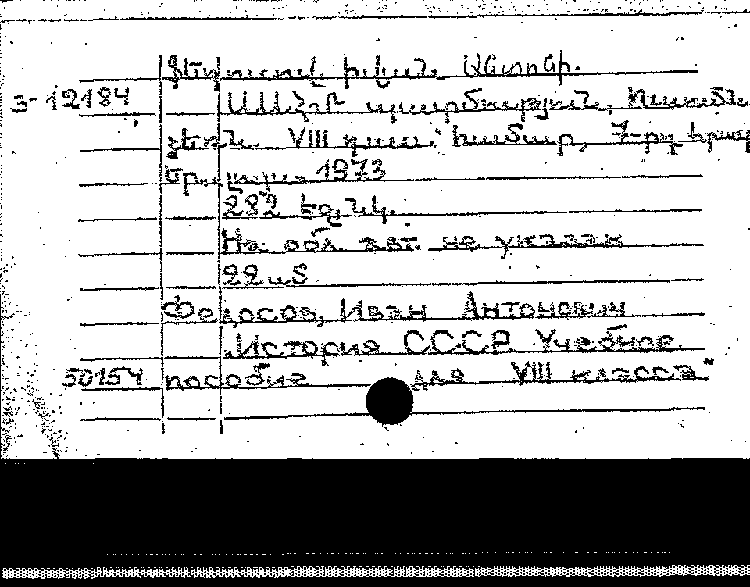 Ֆեդոսով, Իվան Անտոնի.
З-12184 ՍՍՀՄ պատմություն, Ուսումն.
ձեռն. VIII դաս. համար, 7-րդ հրատ
Երևան 1973
282 էջ, նկ.
На обл. авт. не указан
22 к
Федосов, Иван Антонович
„История СССР. Учебное
50154 пособие для VIII класса"